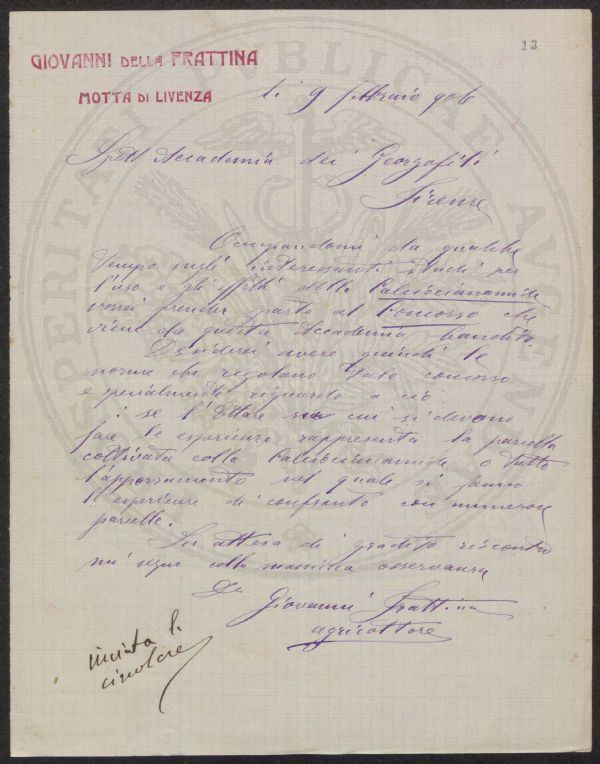 13
GIOVANNI DELLA FRATTINA
MOTTA DI LIVENZA
li 9 febbraio 906
Spett Accademia dei Georgofili
Firenze
Occupandomi da qualche
tempo sugli interessanti studi per
l'uso e gli effetti della Calciocianamide
vorrei prender parte al Concorso che
viene da questa Accademia bandito.
Desidererei avere quindi le
norme che regolano tale concorso
e specialmente riguardo a ciò
: se l'Ettare su cui si devono
fare le esperienze rappresenta la parcella
coltivata colla Calciocianamide o tutto
l'appezzamento nel quale si fanno
le esperienze di confronto con numerose
parcelle.
In attesa di gradito riscontro
mi segno colla massima osservanza
Giovanni Frattina
agricoltore
inviata li
circolare